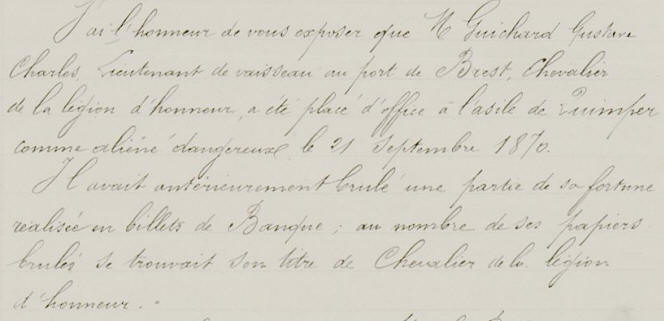 J'ai l'honneur de vous exposer que M Guichard Gustave
Charles, Lieutenant de vaisseau au port de Brest, Chevalier
de la légion d'honneur, a été placé d'office à l'asile de Quimper
comme aliéné dangereux le 21 Septembre 1870.
Il avait antérieurement brulé une partie de sa fortune
réalisée en billets de Banque; au nombre de ses papiers
brulés se trouvait son titre de Chevalier de la légion
d'honneur.